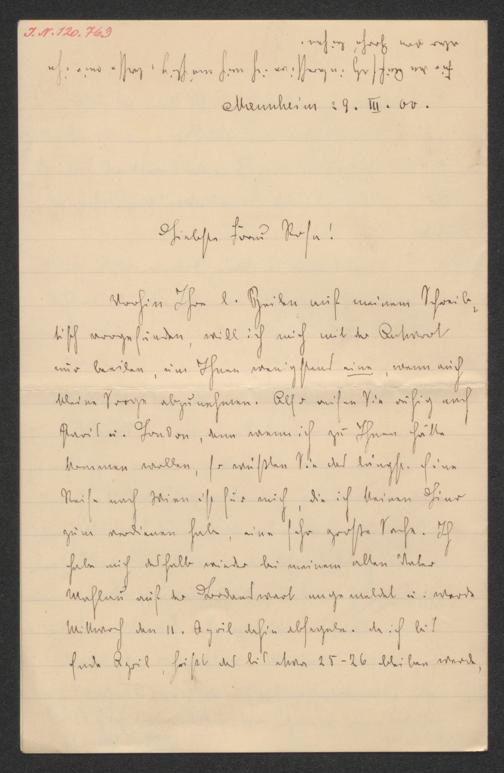 I.N. 120.763
Mannheim 29. III. 00.
Liebste Frau Rosa!
Vorhin Ihre l. Zeilen auf meinem Schreib-
tisch vorgefunden, will ich mich mit der Antwort
nur beeilen, um Ihnen wenigstens eine, wenn auch
kleine Sorge abzunehmen. Also reisen Sie ruhig nach
Paris u. London, denn wenn ich zu Ihnen hätte
kommen wollen, so wüßten Sie das längst. Eine
Reise nach Wien ist für mich, die ich keinen Hiar
zum verdienen habe, eine sehr große Sache. Ich
habe mich deshalb wieder bei meinem alten Vater
Mahlau auf der Bodenswart angemeldet u. werde
Mittwoch den 11. April dahin absegeln. da ich bis
Ende April, heißt das bis etwa 25-26 bleiben werde,